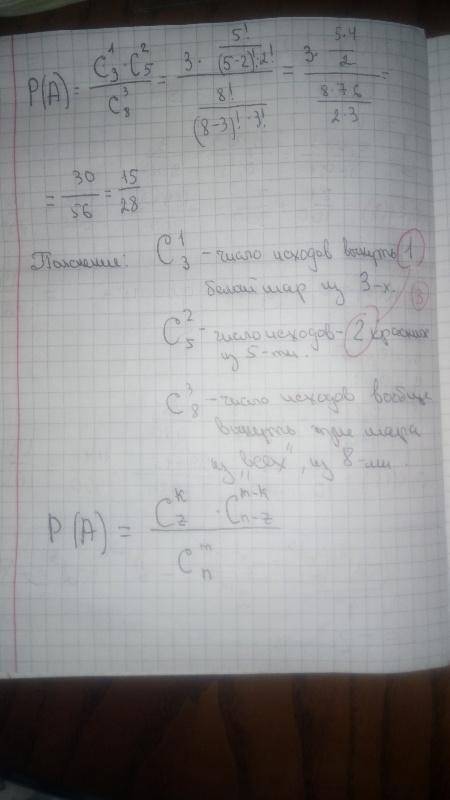 P(A) = C₃¹ · C₅² / C₈³ = 3 · 5! / (5-2)! · 2! / 8! / (8-3)! · 3! = 3 · 5·4 / 2 / 8·7·6 / 2·3 =
= 30/56 = 15/28
Пояснение: C₃¹ - число исходов вынуть 1
белый шар из 3-х.
3
C₅² - число исходов - 2 красных
из 5-ти.
C₈³ - число исходов вообще
вынуть три шара
из "всех", из 8-ми.
P(A) = C_z^k · C_{n-z}^{m-k} / C_n^m